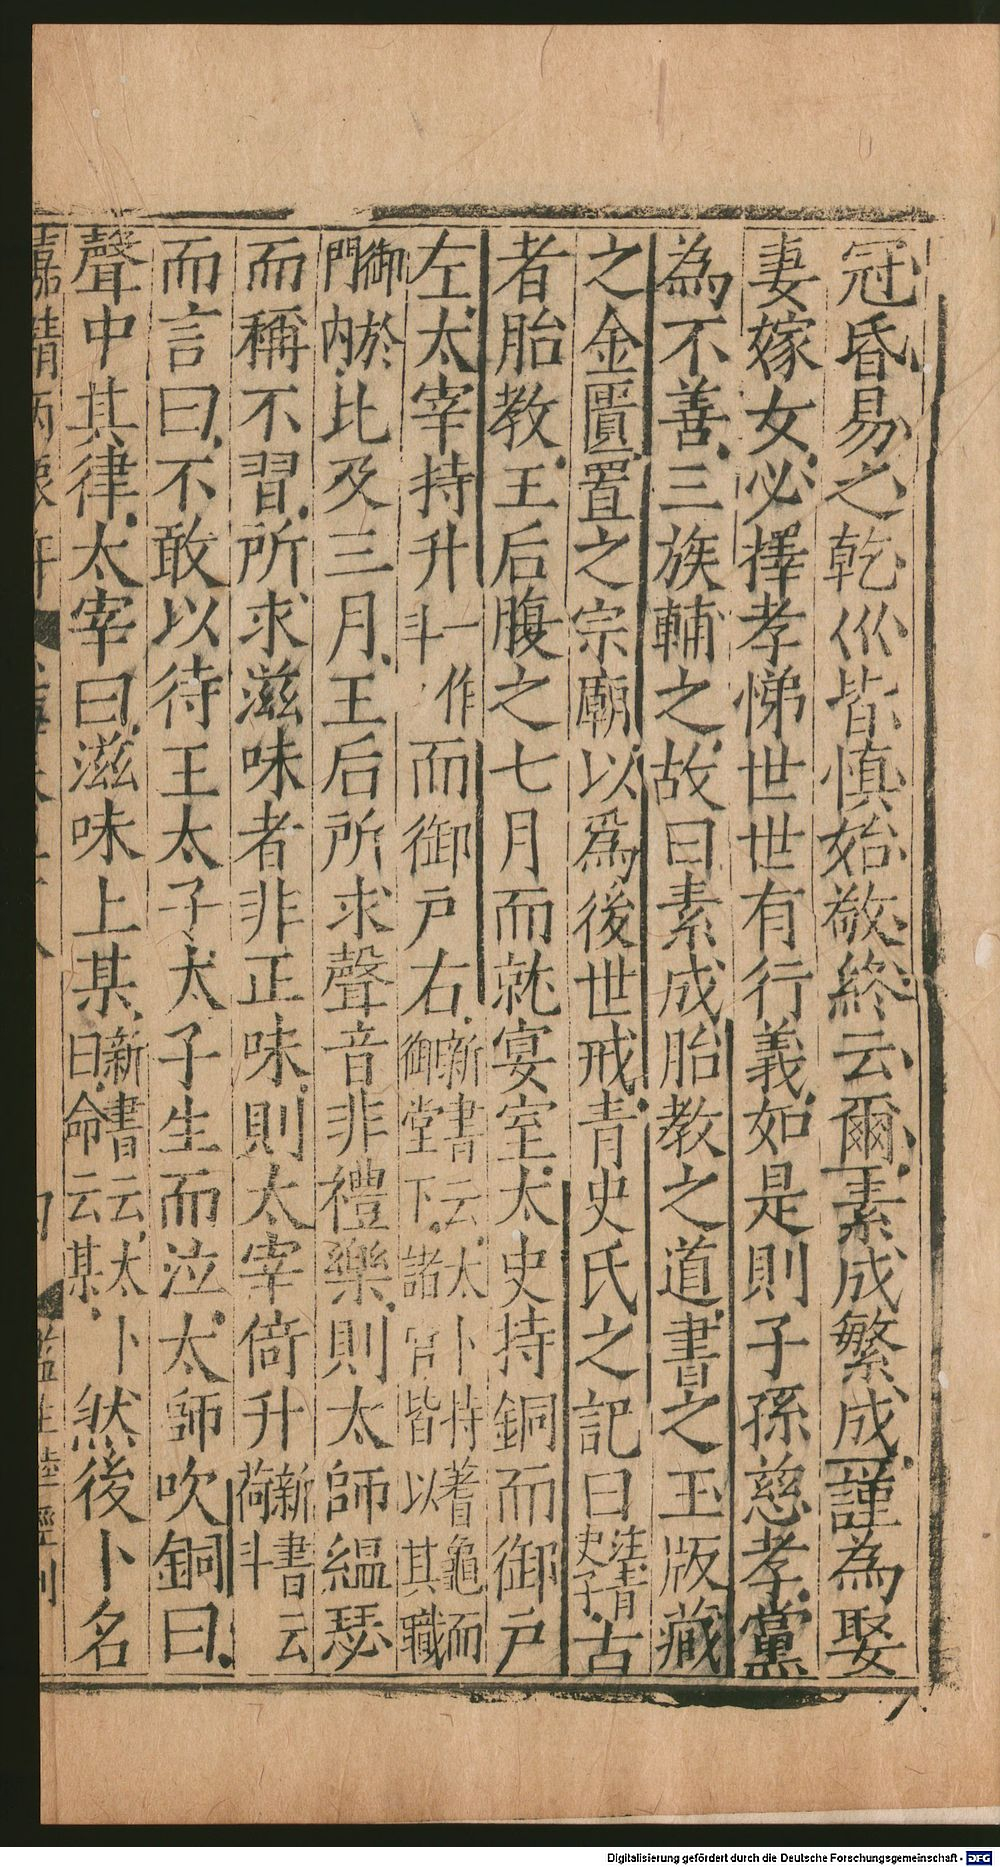 冠昏易之乾巛皆慎始敬終云爾素成繁成謹為娶
妻嫁女必擇孝悌世世有行義如是則子孫慈孝黨
為不善三族輔之故曰素成胎教之道書之玉版藏
之金匱置之宗廟以爲後世戒青史氏之記曰注青史子古
者胎教王后腹之七月而就宴室太史持銅而御戶
左太宰持升一作斗而御戶右新書云太卜持蓍龜而御堂下諸官皆以其職
御於門內比及三月王后所求聲音非禮樂則太師縕瑟
而稱不習所求滋味者非正味則太宰倚升新書云荷斗
而言曰不敢以待王太子太子生而泣太師吹銅曰
聲中其律太宰曰滋味上某新書云太卜曰命云某然後卜名
嘉靖丙年
監生陸經刊
Digitalisierung gefördert durch die Deutsche Forschungsgemeinschaft - DFG